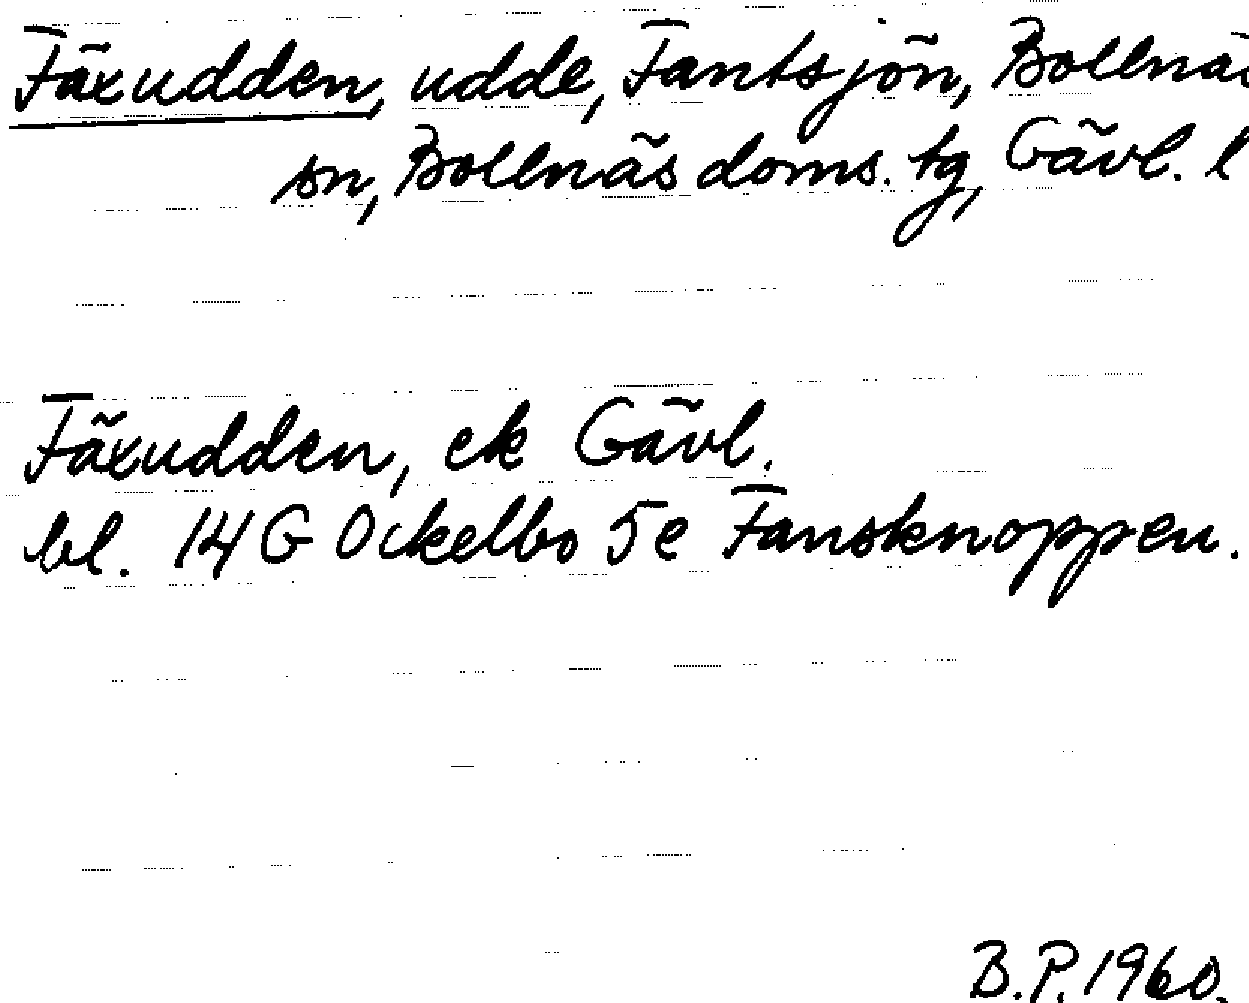 Fäxudden, udde, Fantsjön, Bollnä
sn, Bollnäs doms. tg, Gävl. l
Fäxudden, ek Gävl.
bl. 14 G Ockelbo 5e Fansknoppen.
B.P. 1960.